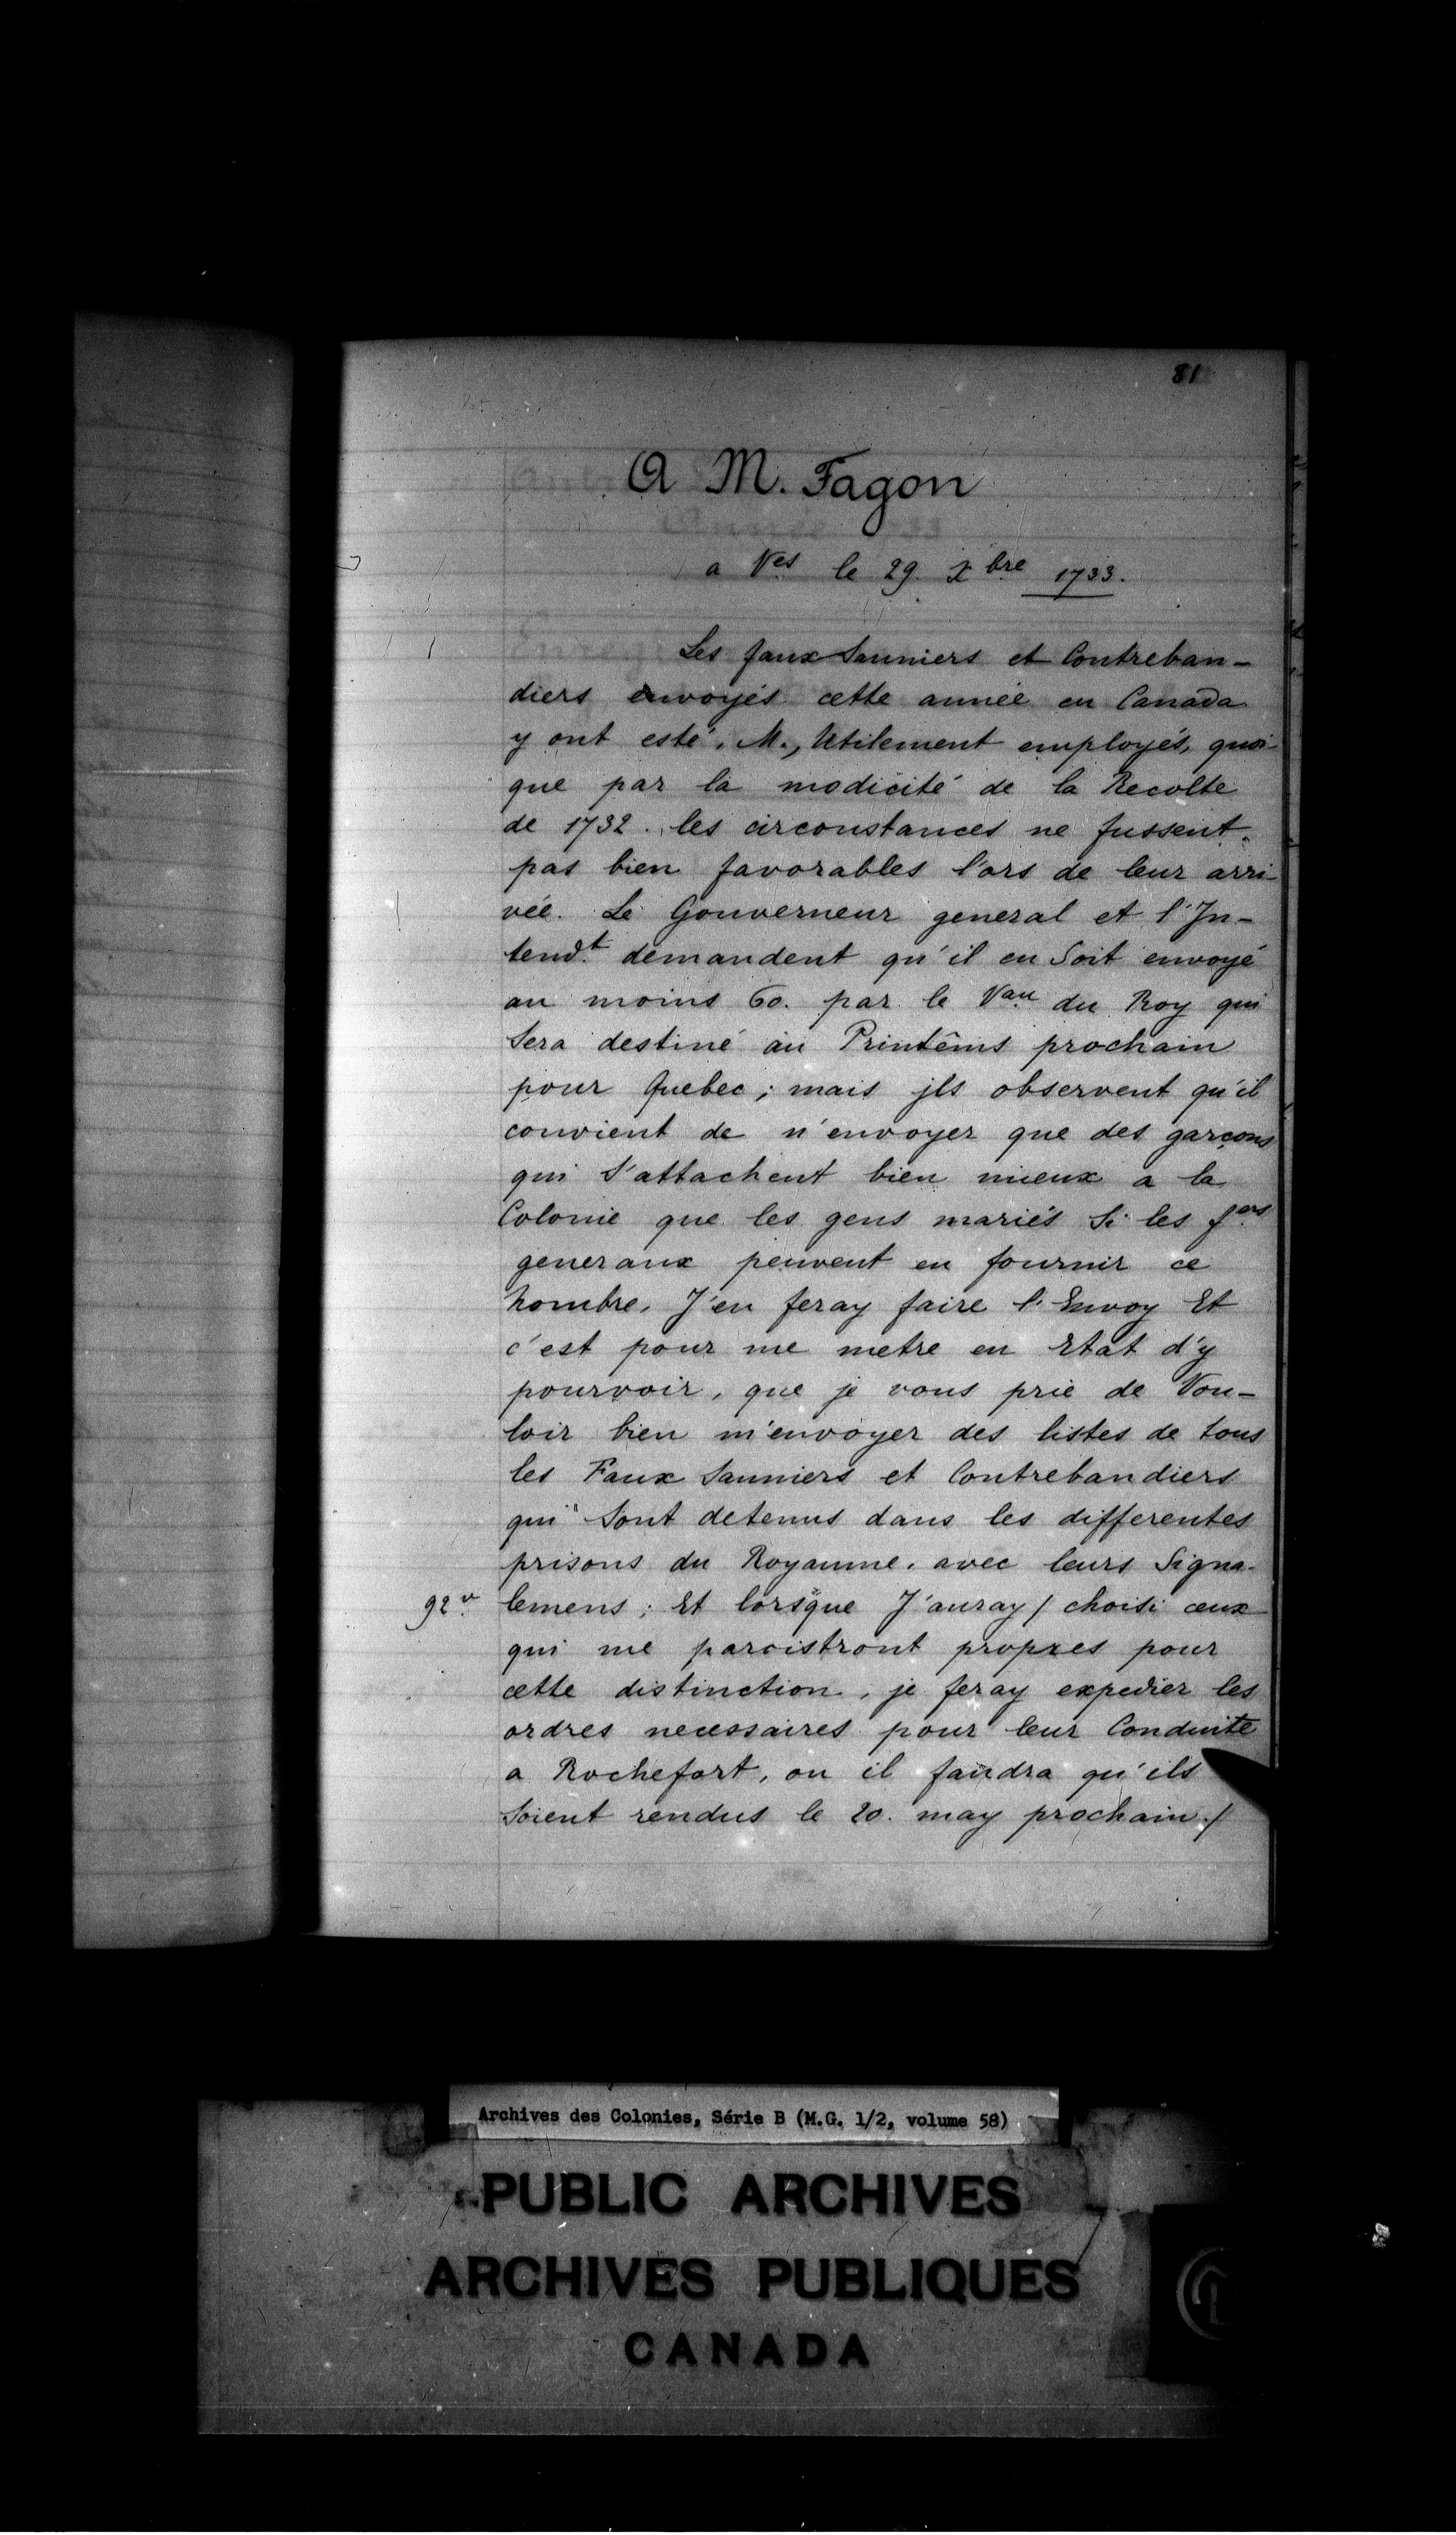 81
A M. Fagon
a Ves le 29. Xbre 1733.
Les faux Sauniers et Contreban-
diers envoyés cette année en Canada
y ont esté, M., Utilement employés, quoi-
que par la modicité de la Recolte
de 1732. les circonstances ne fussent
pas bien favorables l'ors de leur arri-
vée. Le Gouverneur general et l'In-
tendt demandent qu'il en Soit envoyé
au moins 60. par le Vau du Roy qui
Sera destiné au Printêms prochain
pour Quebec; mais jls observent qu'il
convient de n'envoyer que des garçons
qui S'attachent bien mieux a la
Colonie que les gens mariés Si les fers
generaux peuvent en fournir ce
nombre, J'en feray faire l'Envoy Et
c'est pour me metre en Etat d'y
pourvoir, que je vous prie de Vou-
loir bien m'envoyer des listes de tous
les Faux Sauniers et Contrebandiers
qui Sont detenus dans les differentes
prisons du Royaume, avec leurs Signa-
92v. lemens; Et lorsque J'auray / choisi ceux
qui me paroistront propres pour
cette distinction, je feray expedier les
ordres necessaires pour leur Conduite
a Rochefort, ou il faudra qu'ils
Soient rendus le 20. may prochain./
Archives des Colonies, Série B (M.G. 1/2, volume 58)
PUBLIC ARCHIVES
ARCHIVES PUBLIQUES
CANADA